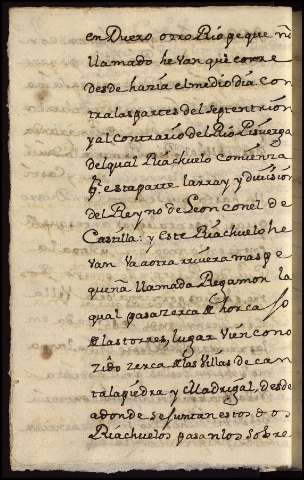 en Duero otro Rio pequeño
llamado hevan que corre
desde hazia el medio dia con
tra las partes del septentrion
y al contrario del Rio Pisuerga
del qual Riachuelo comienza
esta parte la rray y division
del Reyno de Leon con el de
Castilla: y este Riachuelo he
van va a otra rrivera mas pe
queña llamada Regamon la
qual pasa zerca de horca jo
de las torres, lugar vien cono
zido zerca de las Villas de can
talapiedra y Madrigal, desde
adonde se juntan estos dos
Riachuelos pasan los sobre